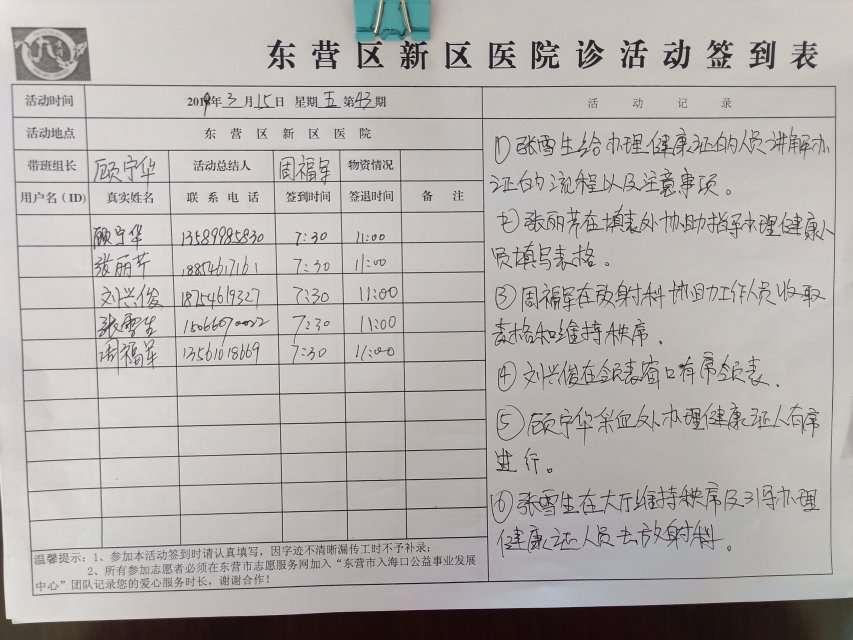 东营区新区医院诊活动签到表
活动时间 2019年3月15日 星期五 第43期 活动记录
活动地点 东营区新区医院
带班组长 顾宁华 活动总结人 周福军 物资情况
用户名(ID) 真实姓名 联系电话 签到时间 签退时间 备注
顾宁华 13589985830 7:30 11:00
张丽芹 18854617161 7:30 11:00
刘兴俊 18754619327 7:30 11:00
张雪生 15066070022 7:30 11:00
周福军 13561018669 7:30 11:00
①张雪生给办理健康证的人员讲解办
证的流程以及注意事项。
②张丽芹在填表处协助指导办理健康人
员填写表格。
③周福军在放射科协助工作人员收取
表格和维持秩席.
④刘兴俊在领表窗口有席领表.
⑤顾宁华采血处办理健康证人有席
进行。
⑥张雪生在大厅维持秩席及引导办理
健康证人员去放射科。
温馨提示:1、参加本活动签到时请认真填写,因字迹不清晰漏传工时不予补录;
2、所有参加志愿者必须在东营市志愿服务网加入“东营市入海口公益事业发展
中心”团队记录您的爱心服务时长,谢谢合作!